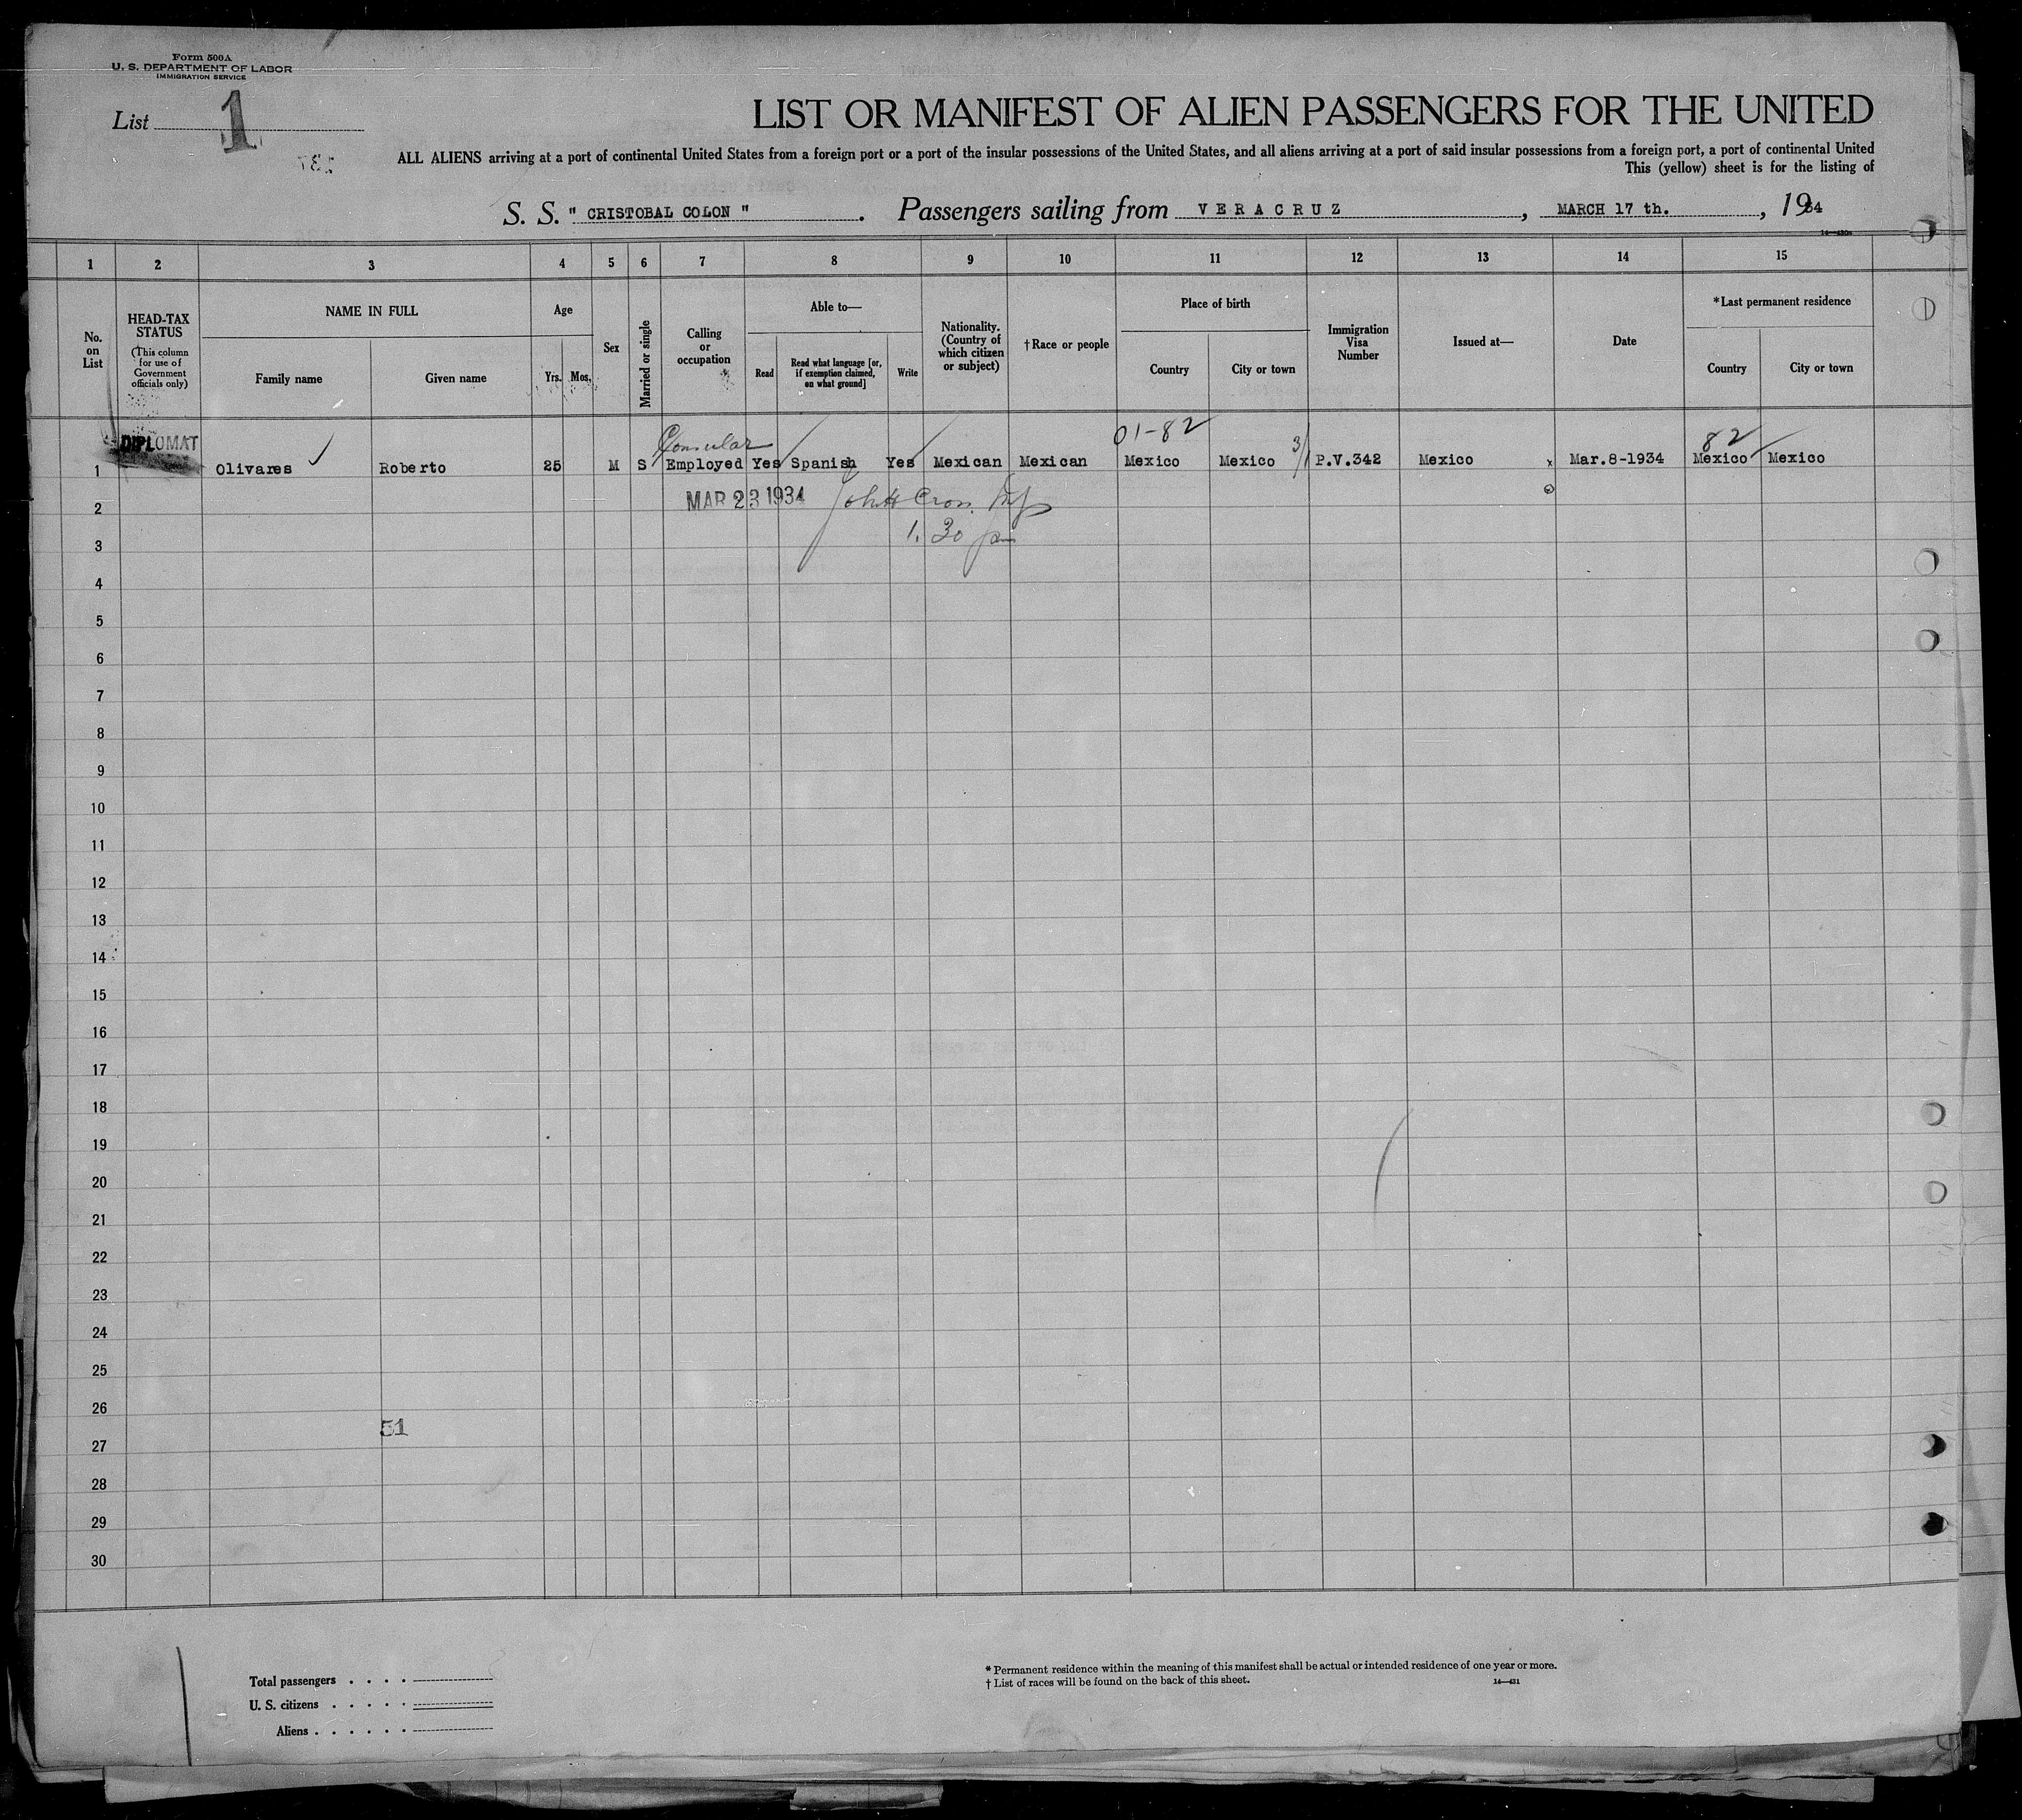 Form 500A
U. S. DEPARTMENT OF LABOR
IMMIGRATION SERVICE
List 1
LIST OR MANIFEST OF ALIEN PASSENGERS FOR THE UNITED
ALL ALIENS arriving at a port of continental United States from a foreign port or a port of the insular possessions of the United States, and all aliens arriving at a port of said insular possessions from a foreign port, a port of continental United
This (yellow) sheet is for the listing of
S. S. " CRISTOBAL COLON " . Passengers sailing from VERACRUZ , MARCH 17 th. , 1934
1 2 3 4 5 6 7 8 9 10 11 12 13 14 15
No. on List
HEAD-TAX STATUS
(This column for use of Government officials only)
NAME IN FULL
Family name
Given name
Age
Yrs. Mos.
Sex
Married or single
Calling or occupation
Able to—
Read
Read what language [or, if exemption claimed, on what ground]
Write
Nationality. (Country of which citizen or subject)
†Race or people
Place of birth
Country
City or town
Immigration Visa Number
Issued at—
Date
*Last permanent residence
Country
City or town
DIPLOMAT
Consular
01-82
82
1 Olivares Roberto 25 M S Employed Yes Spanish Yes Mexican Mexican Mexico Mexico 3/ P.V.342 Mexico x Mar.8-1934 Mexico Mexico
MAR 23 1934
1.30 pm
2
3
4
5
6
7
8
9
10
11
12
13
14
15
16
17
18
19
20
21
22
23
24
25
26
51
27
28
29
30
Total passengers . . . .
U. S. citizens . . . . .
Aliens . . . . . .
* Permanent residence within the meaning of this manifest shall be actual or intended residence of one year or more.
† List of races will be found on the back of this sheet.
14—431